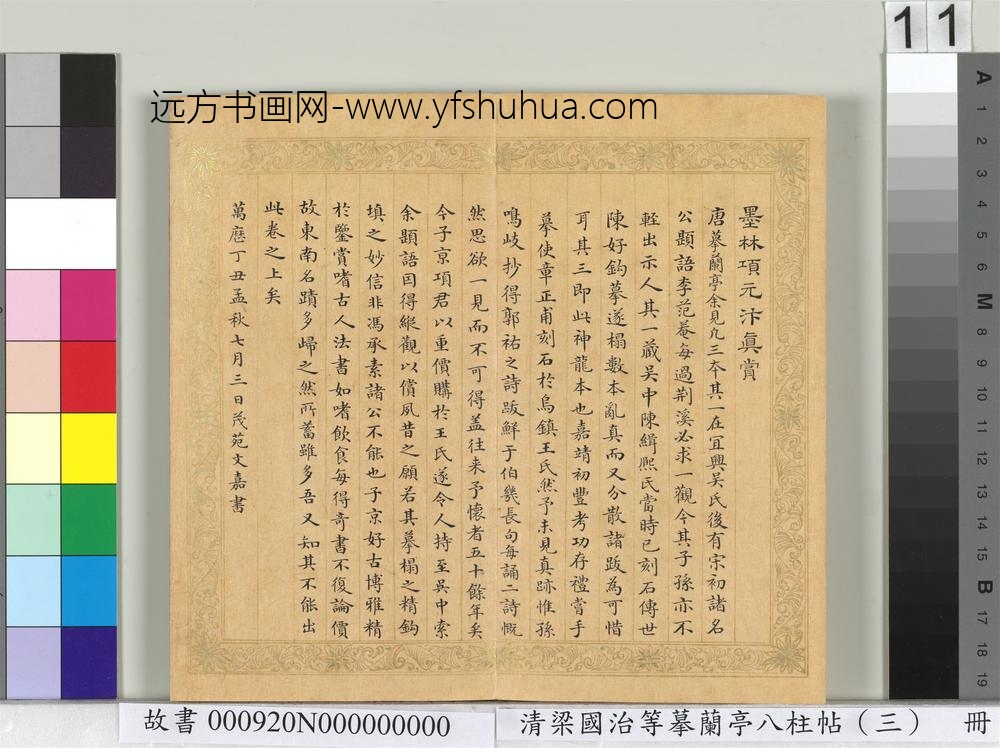 11
远方书画网-www.yfshuhua.com
墨林項元汴真賞
唐摹蘭亭余見凡三本其一在宜興吳氏後有宋初諸名
公題語李范菴每過荆溪必求一觀今其子孫亦不
輕出示人其一藏吳中陳緝熙氏當時已刻石傳世
陳好鈎摹遂搨數本亂真而又分散諸跋為可惜
耳其三即此神龍本也嘉靖初豐考功存禮嘗手
摹使章正甫刻石於烏鎮王氏然予未見真跡惟孫
鳴岐抄得郭祐之詩跋鮮于伯幾長句每誦二詩慨
然思欲一見而不可得盖往来予懷者五十餘年矣
今子京項君以重價購於王氏遂令人持至吳中索
余題語因得縱觀以償夙昔之願若其摹搨之精鈎
填之妙信非馮承素諸公不能也子京好古博雅精
於鑒賞嗜古人法書如嗜飲食每得奇書不復論價
故東南名蹟多歸之然所蓄雖多吾又知其不能出
此卷之上矣
萬厯丁丑孟秋七月三日茂苑文嘉書
A
1
2
3
4
5
6
M
8
9
10
11
12
13
14
15
B
17
18
19
故書 000920N000000000
清梁國治等摹蘭亭八柱帖（三） 冊